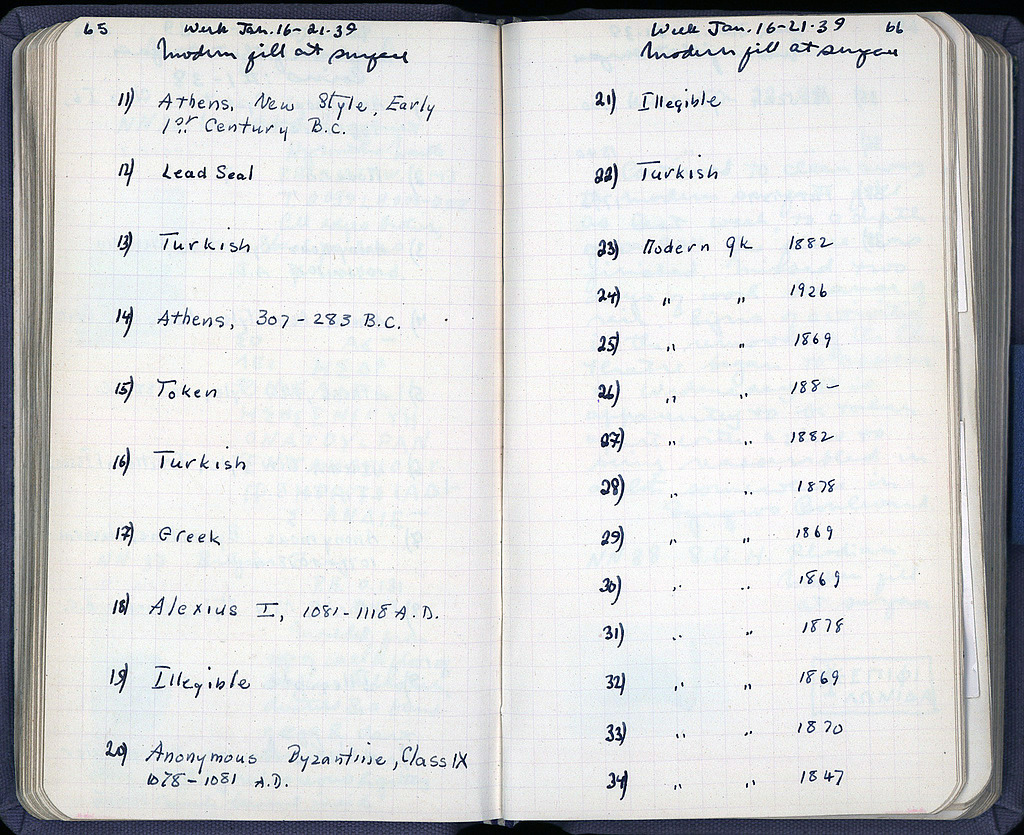 65 Week Jan. 16-21-39
Modern fill at surface
11) Athens, New Style, Early
1st Century B.C.
12) Lead Seal
13) Turkish
14) Athens, 307-283 B.C.
15) Token
16) Turkish
17) Greek
18) Alexius I, 1081-1118 A.D.
19) Illegible
20) Anonymous Byzantine, Class IX
1078-1081 A.D.
Week Jan. 16-21-39 66
Modern fill at surface
21) Illegible
22) Turkish
23) Modern Gk 1882
24) " " 1926
25) " " 1869
26) " " 188-
27) " " 1882
28) " " 1878
29) " " 1869
30) " " 1869
31) " " 1878
32) " " 1869
33) " " 1870
34) " " 1847